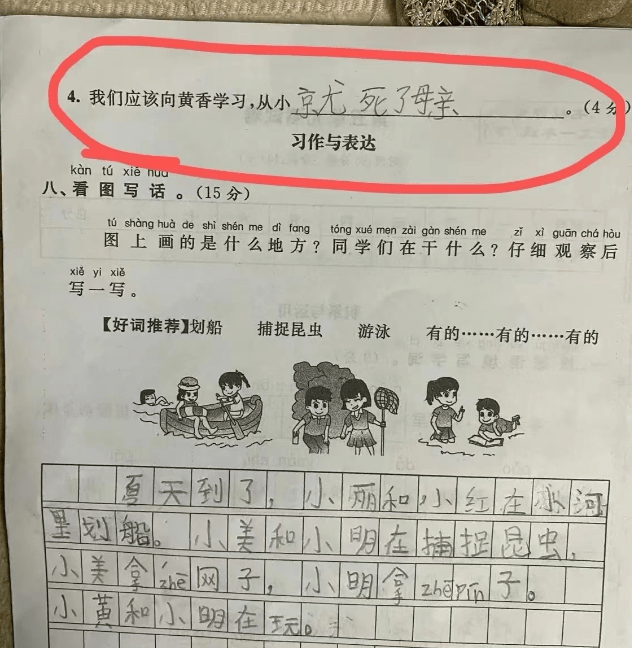 4. 我们应该向黄香学习,从小京尤死了母亲。(4分)
习作与表达
kàn tú xiě huà
八、看图写话。(15分)
tú shàng huà de shì shén me dì fang tóng xué men zài gàn shén me zǐ xì guān chá hòu
图上画的是什么地方?同学们在干什么?仔细观察后
xiě yi xiě
写一写。
【好词推荐】划船 捕捉昆虫 游泳 有的……有的……有的
夏天到了,小丽和小红在水河
里划船。小美和小明在捕捉昆虫,
小美拿zhe网子,小明拿zhe pín子。
小黄和小明在玩。